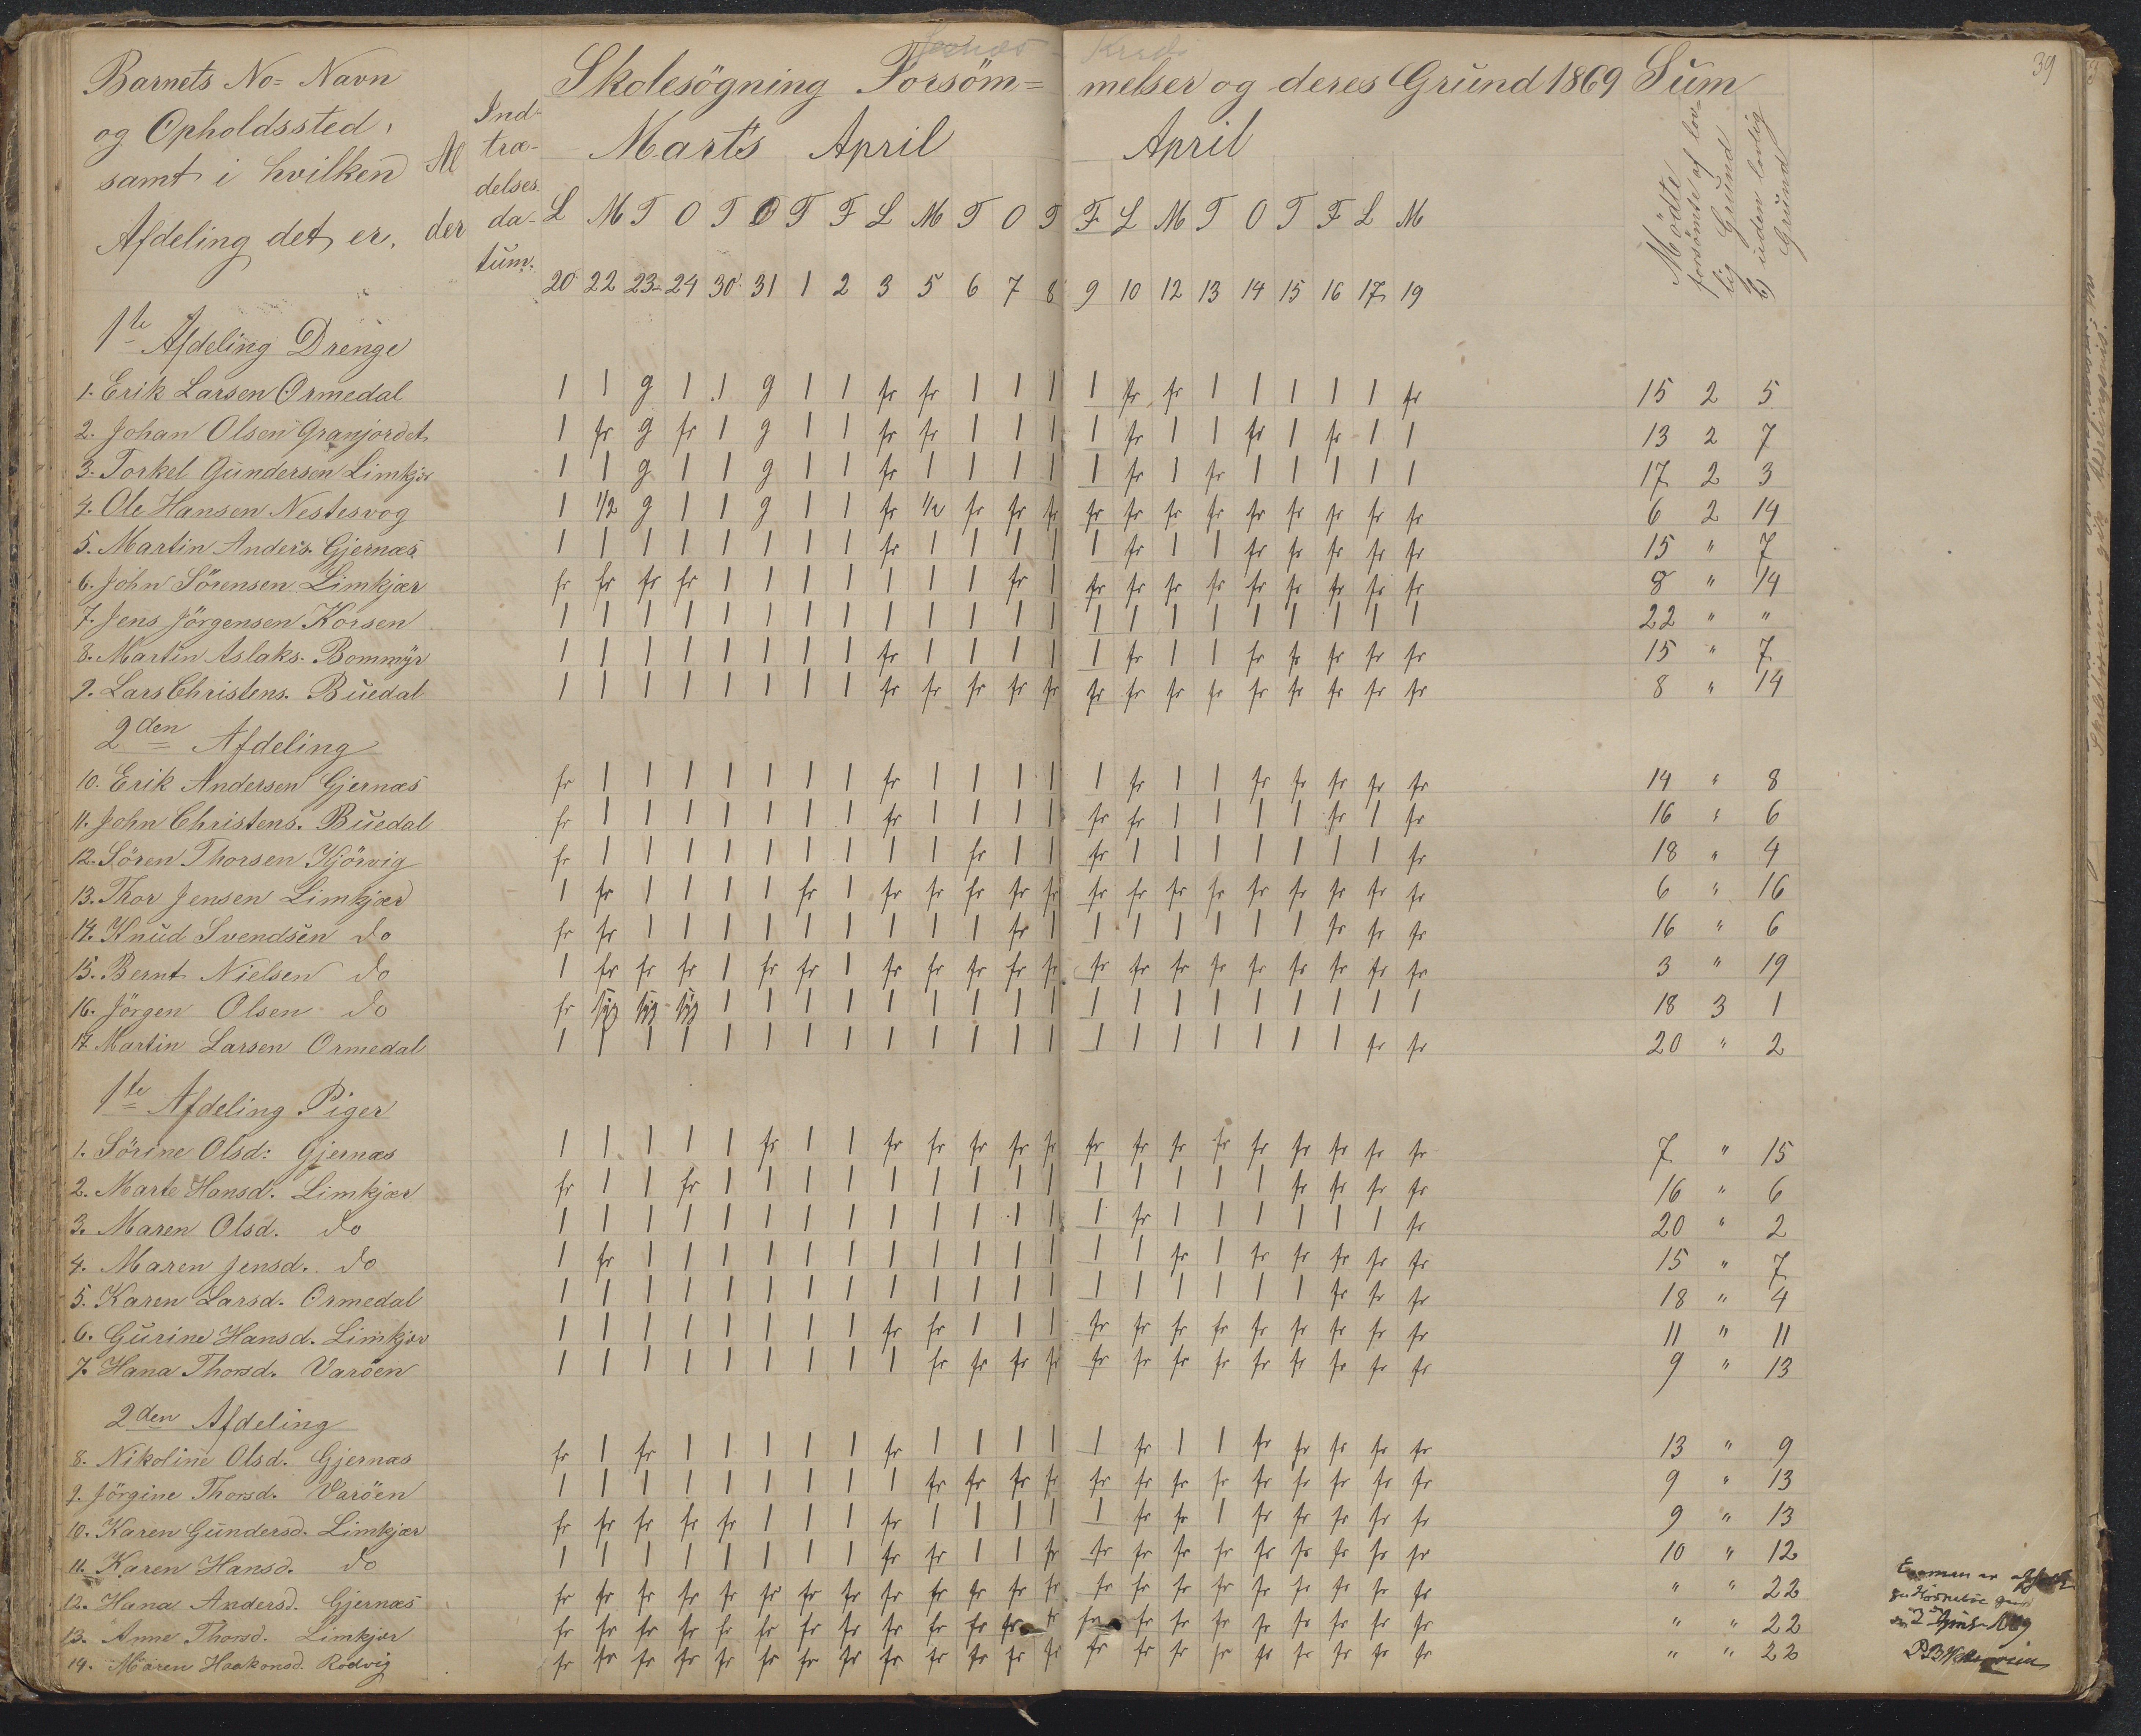 39
Skolesögning Forsöm= melser og deres Grund 1869 Sum
Barnets No= Navn
og Opholdssted,
samt i hvilken
Afdeling det er.
M
der
Ind=
træ-
delses-
da-
tum:
Marts April April
L M T O T O T F L M T O T F L M T O T F L M
20 22 23 24 30 31 1 2 3 5 6 7 8 9 10 12 13 14 15 16 17 19
Mödte
forsömte af lov-
lig Grund
uden lovlig
Grund
1te Afdeling Drenge
1. Erik Larsen Ormedal 1 1 g 1 1 g 1 1 fr fr 1 1 1 1 fr fr 1 1 1 1 1 fr 15 2 5
2. Johan Olsen Granjordet 1 fr g fr 1 g 1 1 fr fr 1 1 1 1 fr 1 1 fr 1 fr 1 1 13 2 7
3. Torkel Gundersen Limkjær 1 1 g 1 1 g 1 1 fr 1 1 1 1 1 fr 1 fr 1 1 1 1 1 17 2 3
4. Ole Hansen Nestesvog 1 1/2 g 1 1 g 1 1 fr 1/2 fr fr fr fr fr fr fr fr fr fr fr fr 6 2 14
5. Martin Anders. Gjernæs 1 1 1 1 1 1 1 1 fr 1 1 1 1 1 fr 1 1 fr fr fr fr fr 15 " 7
6. John Sörensen Limkjær fr fr fr fr 1 1 1 1 1 1 1 fr 1 fr fr fr fr fr fr fr fr fr 8 " 14
7. Jens Jörgensen Korsen 1 1 1 1 1 1 1 1 1 1 1 1 1 1 1 1 1 1 1 1 1 1 22 " "
8. Martin Aslaks. Bommyr 1 1 1 1 1 1 1 1 fr 1 1 1 1 1 fr 1 1 fr fr fr fr fr 15 " 7
9. Lars Christens. Buedal 1 1 1 1 1 1 1 1 fr fr fr fr fr fr fr fr fr fr fr fr fr fr 8 " 14
2den Afdeling
10. Erik Andersen Gjernæs fr 1 1 1 1 1 1 1 fr 1 1 1 1 1 fr 1 1 fr fr fr fr fr 14 " 8
11. John Christens. Buedal fr 1 1 1 1 1 1 1 fr 1 1 1 1 fr fr 1 1 1 1 fr 1 fr 16 " 6
12. Sören Thorsen Kjörvig fr 1 1 1 1 1 1 1 1 1 fr 1 1 fr 1 1 1 1 1 1 1 fr 18 " 4
13. Thor Jensen Limkjær 1 fr 1 1 1 1 fr 1 fr fr fr fr fr fr fr fr fr fr fr fr fr fr 6 " 16
14. Knud Svendsen do fr fr 1 1 1 1 1 1 1 1 1 fr 1 1 1 1 1 1 1 fr fr fr 16 " 6
15. Bernt Nielsen do 1 fr fr fr 1 fr fr 1 fr fr fr fr fr fr fr fr fr fr fr fr fr fr 3 " 19
16. Jörgen Olsen do fr syg syg syg 1 1 1 1 1 1 1 1 1 1 1 1 1 1 1 1 1 1 18 3 1
17. Martin Larsen Ormedal 1 1 1 1 1 1 1 1 1 1 1 1 1 1 1 1 1 1 1 1 fr fr 20 " 2
1te Afdeling Piger
1. Sörine Olsd: Gjernæs 1 1 1 1 1 fr 1 1 fr fr fr fr fr fr fr fr fr fr fr fr fr fr 7 " 15
2. Marte Hansd. Limkjær fr 1 1 fr 1 1 1 1 1 1 1 1 1 1 1 1 1 1 fr fr fr fr 16 " 6
3. Maren Olsd. do 1 1 1 1 1 1 1 1 1 1 1 1 1 1 fr 1 1 1 1 1 1 fr 20 " 2
4. Maren Jensd. do 1 fr 1 1 1 1 1 1 1 1 1 1 1 1 1 fr 1 fr fr fr fr fr 15 " 7
5. Karen Larsd. Ormedal 1 1 1 1 1 1 1 1 1 1 1 1 1 1 1 1 1 1 1 fr fr fr 18 " 4
6. Gurine Hansd. Limkjær 1 1 1 1 1 1 1 1 fr fr 1 1 1 fr fr fr fr fr fr fr fr fr 11 " 11
7. Hana Thorsd. Varöen 1 1 1 1 1 1 1 1 1 fr fr fr fr fr fr fr fr fr fr fr fr fr 9 " 13
2den Afdeling
8. Nikoline Olsd. Gjernæs fr 1 fr 1 1 1 1 1 fr 1 1 1 1 1 fr 1 1 fr fr fr fr fr 13 " 9
9. Jörgine Thorsd. Varöen 1 1 1 1 1 1 1 1 1 fr fr fr fr fr fr fr fr fr fr fr fr fr 9 " 13
10. Karen Gundersd. Limkjær fr fr fr fr fr 1 1 1 fr 1 1 1 1 1 fr fr 1 fr fr fr fr fr 9 " 13
11. Karen Hansd. do 1 1 1 1 1 1 1 1 fr fr 1 1 fr fr fr fr fr fr fr fr fr fr 10 " 12
12. Hana Andersd. Gjernæs fr fr fr fr fr fr fr fr fr fr fr fr fr fr fr fr fr fr fr fr fr fr " " 22
13. Anne Thorsd. Limkjær fr fr fr fr fr fr fr fr fr fr fr fr fr fr fr fr fr fr fr fr fr fr " " 22
14. Maren Haakonsd. Rödvig fr fr fr fr fr fr fr fr fr fr fr fr fr fr fr fr fr fr fr fr fr fr " " 22
Examen er